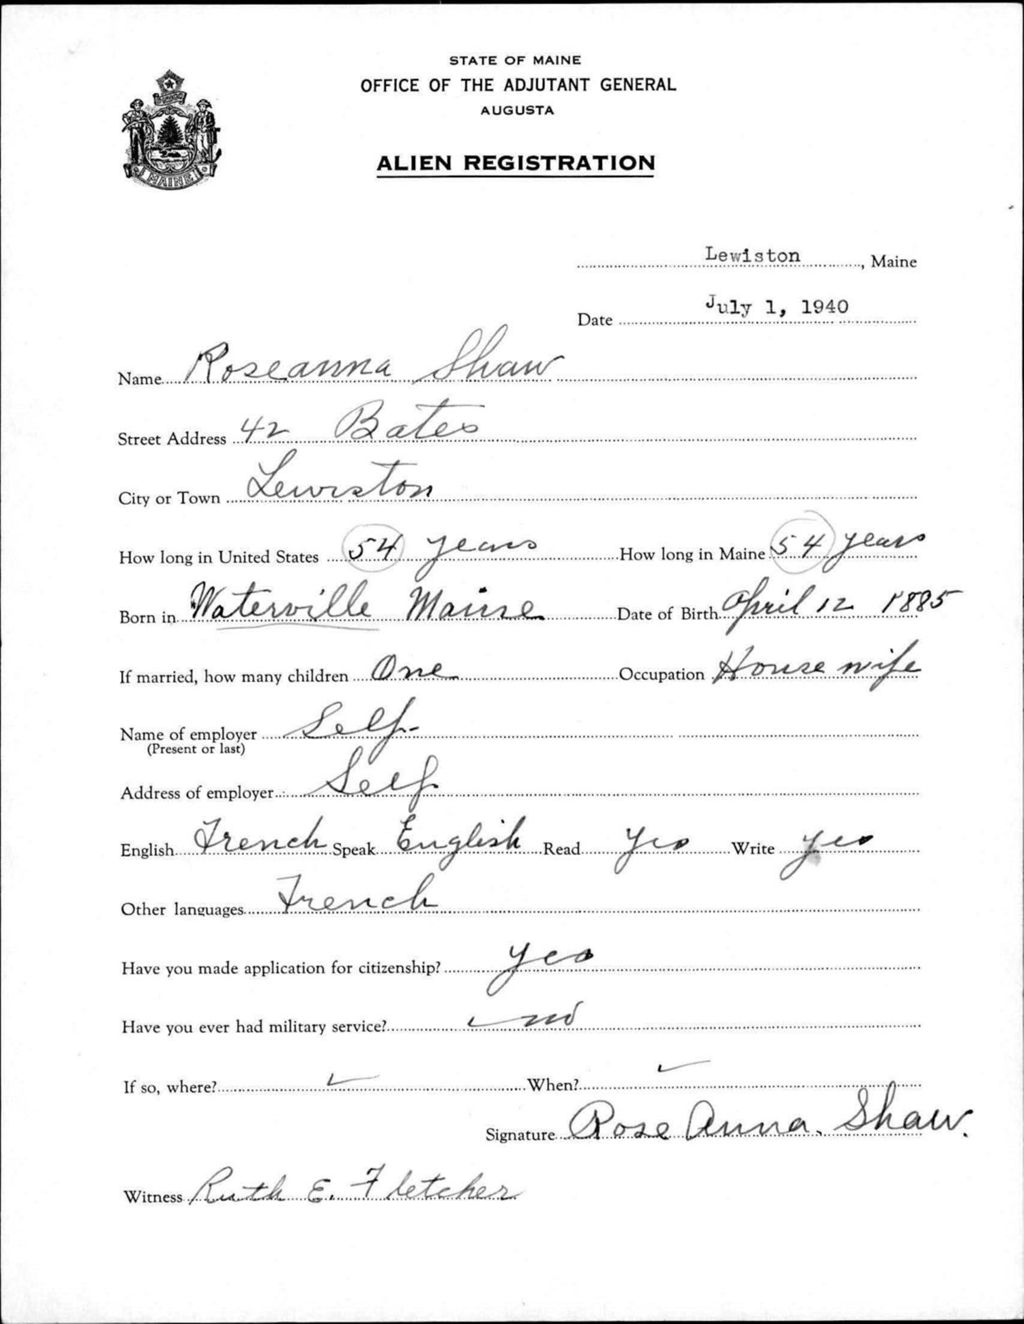 STATE OF MAINE
OFFICE OF THE ADJUTANT GENERAL
AUGUSTA
ALIEN REGISTRATION
MAINE
Lewiston, Maine
Date July 1, 1940
Name Roseanna Shaw
Street Address 42 Bates
City or Town Lewiston
How long in United States 54 years How long in Maine 54 years
Born in Waterville Maine Date of Birth April 12 1885
If married, how many children One Occupation House wife
Name of employer Self
(Present or last)
Address of employer Self
English French Speak English Read Yes Write yes
Other languages French
Have you made application for citizenship? Yes
Have you ever had military service? no
If so, where? When?
Signature Rose Anna. Shaw.
Witness Ruth E. Fletcher